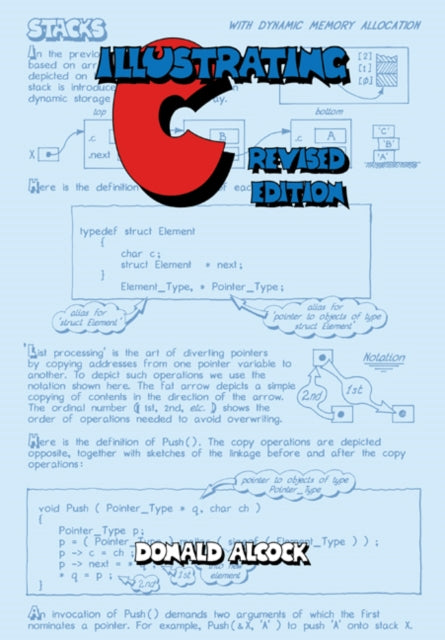 STACKS
WITH DYNAMIC MEMORY ALLOCATION
ILLUSTRATING
C
REVISED
EDITION
In the previo
based on arr
depicted on
stack is introduce
dynamic storage
ay.
[2]
[1]
[0]
top
bottom
X
.c
.next
B
.c
A
'C'
'B'
'A'
Here is the definition of each
typedef struct Element
{
char c;
struct Element * next;
}
Element_Type, * Pointer_Type;
alias for
'struct Element'
alias for
'pointer to objects of type
struct Element'
'List processing' is the art of diverting pointers
by copying addresses from one pointer variable to
another. To depict such operations we use the
notation shown here. The fat arrow depicts a simple
copying of contents in the direction of the arrow.
The ordinal number (1st, 2nd, etc.) shows the
order of operations needed to avoid overwriting.
Notation
2nd
1st
Here is the definition of Push(). The copy operations are depicted
opposite, together with sketches of the linkage before and after the copy
operations:
pointer to objects of type
Pointer_Type
void Push ( Pointer_Type * q, char ch )
{
Pointer_Type p;
p = ( Pointer_Type ) malloc ( sizeof ( Element_Type ) ) ;
p -> c = ch ;
p -> next = * q
* q = p ;
}
2nd
1st
into new
element
DONALD ALCOCK
An invocation of Push() demands two arguments of which the first
nominates a pointer. For example, Push(&X, 'A') to push 'A' onto stack X.